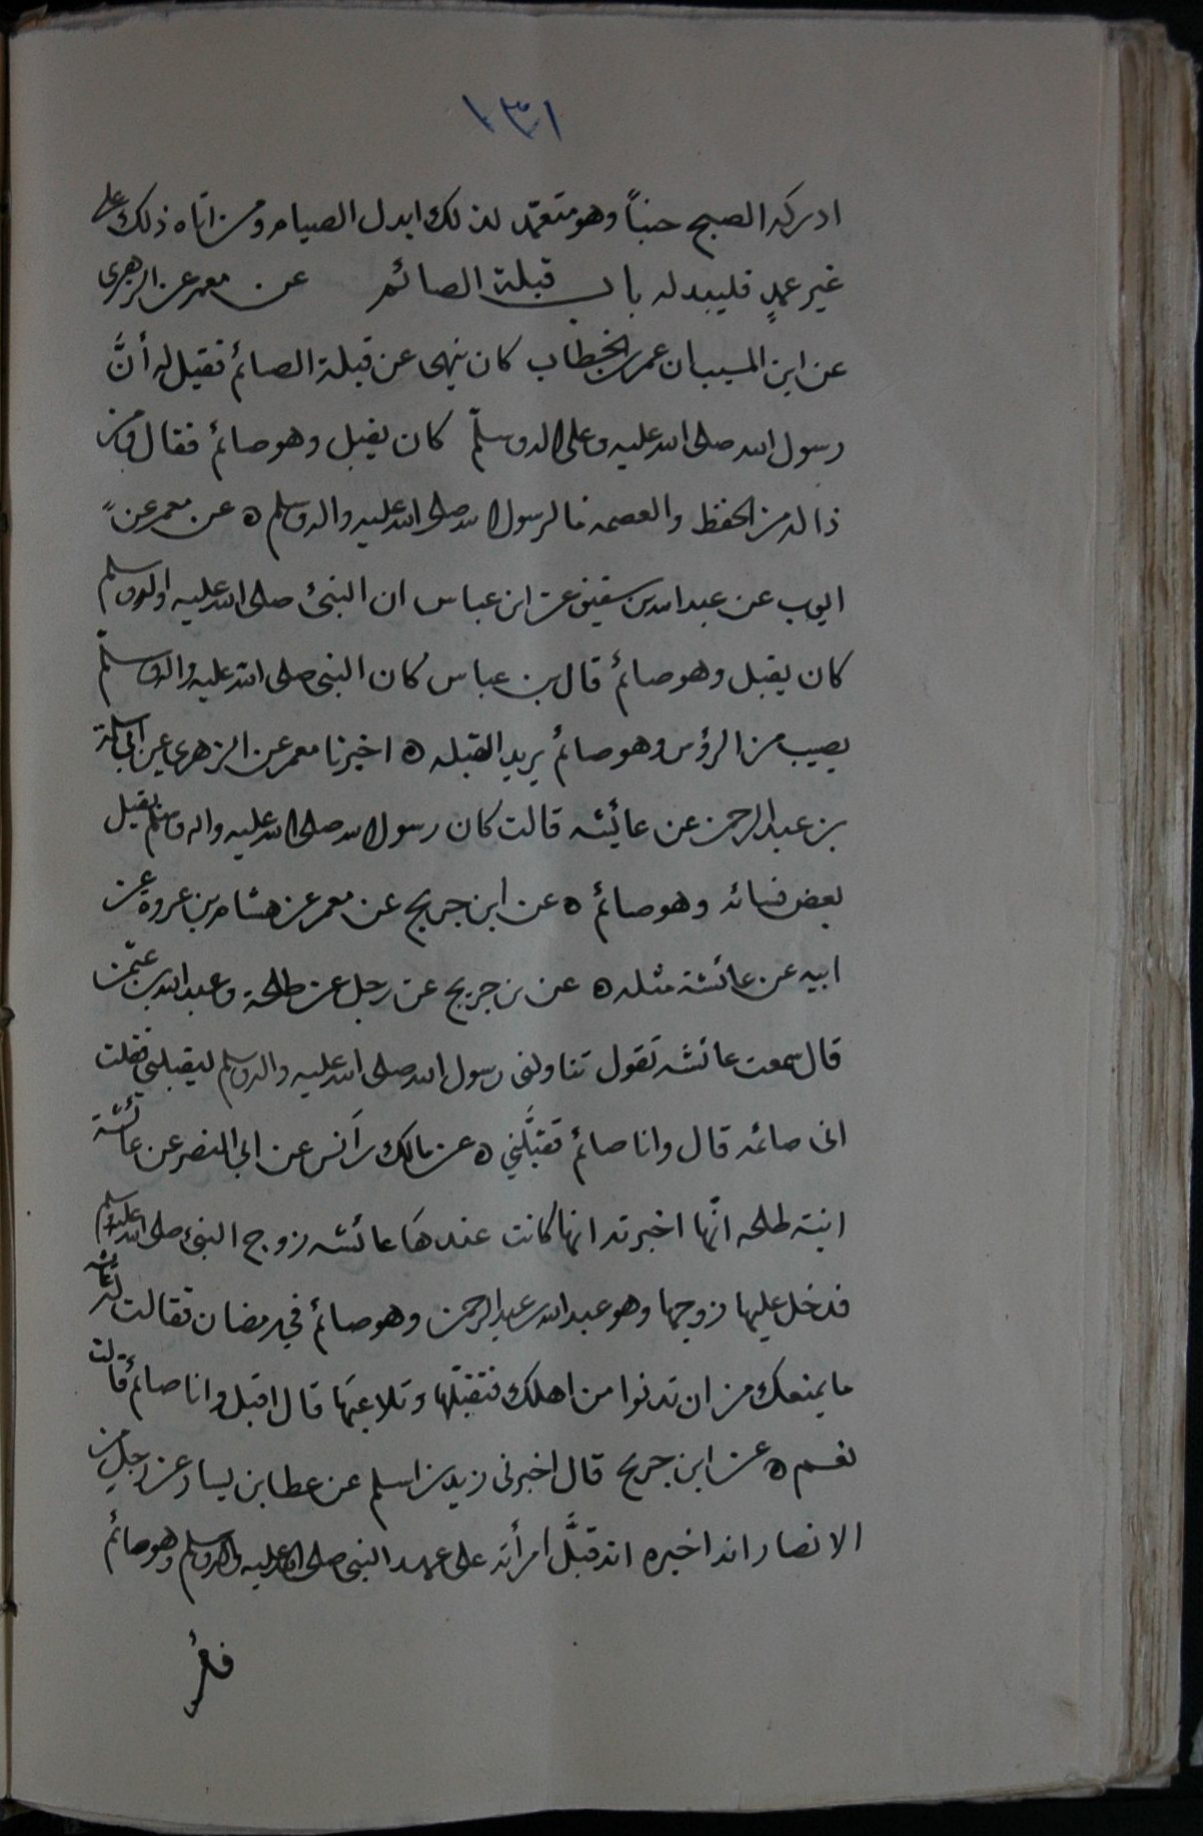 ١٣١
ادركه الصبح جنباً وهو متعمّد لذلك ابدل الصيام ومن اتاه ذلك على
غير عمدٍ فليبدله باب قبلة الصائم عن معمر عن الزهرى
عن ابن المسيب ان عمر بن الخطاب كان ينهى عن قبلة الصائم فقيل له أنَّ
رسول الله صلى الله عليه وعلى اله وسلّم كان يقبل وهو صائم فقال ومن
ذا له من الحفظ والعصمه ما لرسول الله صلى الله عليه واله وسلم ه عن معمر عن
ايوب عن عبد الله بن سقيق عن ابن عباس ان النبى صلى الله عليه واله وسلم
كان يقبل وهو صائم قال بن عباس كان النبى صلى الله عليه واله وسلّم
يصيب من الرؤس وهو صائم يريد القبله ه اخبرنا معمر عن الزهرى عن ابى سلمة
بن عبد الرحمن عن عائشه قالت كان رسول الله صلى الله عليه واله وسلم يقبل
بعض نسائه وهو صائم ه عن ابن جريج عن معمر عن هشام بن عروة عن
ابيه عن عائشة مثله ه عن بن جريج عن رجل عن طلحة وعبد الله بن عثمن
قال سمعت عائشه تقول تناولنى رسول الله صلى الله عليه واله وسلم ليقبلنى فقلت
انى صائمه قال وانا صائم فقبَّلني ه عن مالك بن أنس عن ابي النضر عن عائشة
ابنة طلحه انّها اخبرته انها كانت عندها عائشه زوج النبى صلى الله عليه وسلم
فدخل عليها زوجها وهو عبد الله بن عبد الرحمن وهو صائم في رمضان فقالت له عائشه
ما يمنعك من ان تدنوا من اهلك فتقبّلها وتلاعبها قال اقبل وانا صائم قالت
نعم ه عن ابن جريج قال اخبرنى زيد بن اسلم عن عطا بن يسار عن رجل من
الانصار انه اخبره انه قبَّل امرأته على عهد النبى صلى الله عليه واله وسلم وهو صائم
فأمر